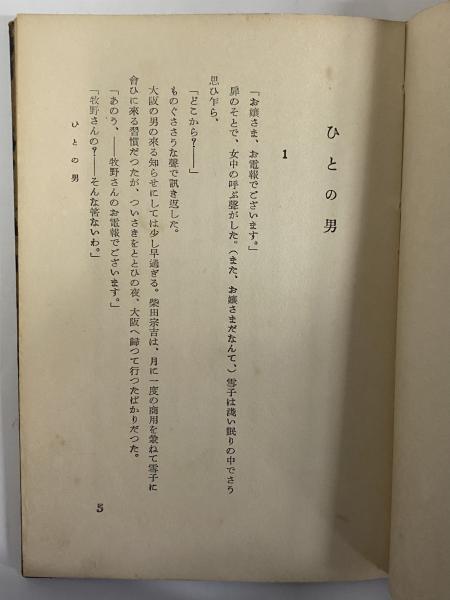 ひとの男
1
「お孃さま、お電報でございます。」
扉のそとで、女中の呼ぶ聲がした。（また、お孃さまだなんて、）雪子は淺い眠りの中でさう
思ひ乍ら、
「どこから？――」
ものぐささうな聲で訊き返した。
大阪の男の來る知らせにしては少し早過ぎる。柴田宗吉は、月に一度の商用を兼ねて雪子に
會ひに來る習慣だつたが、ついさきをととひの夜、大阪へ歸つて行つたばかりだつた。
「あのう、――牧野さんのお電報でございます。」
「牧野さんの？――そんな筈ないわ。」
ひとの男
5